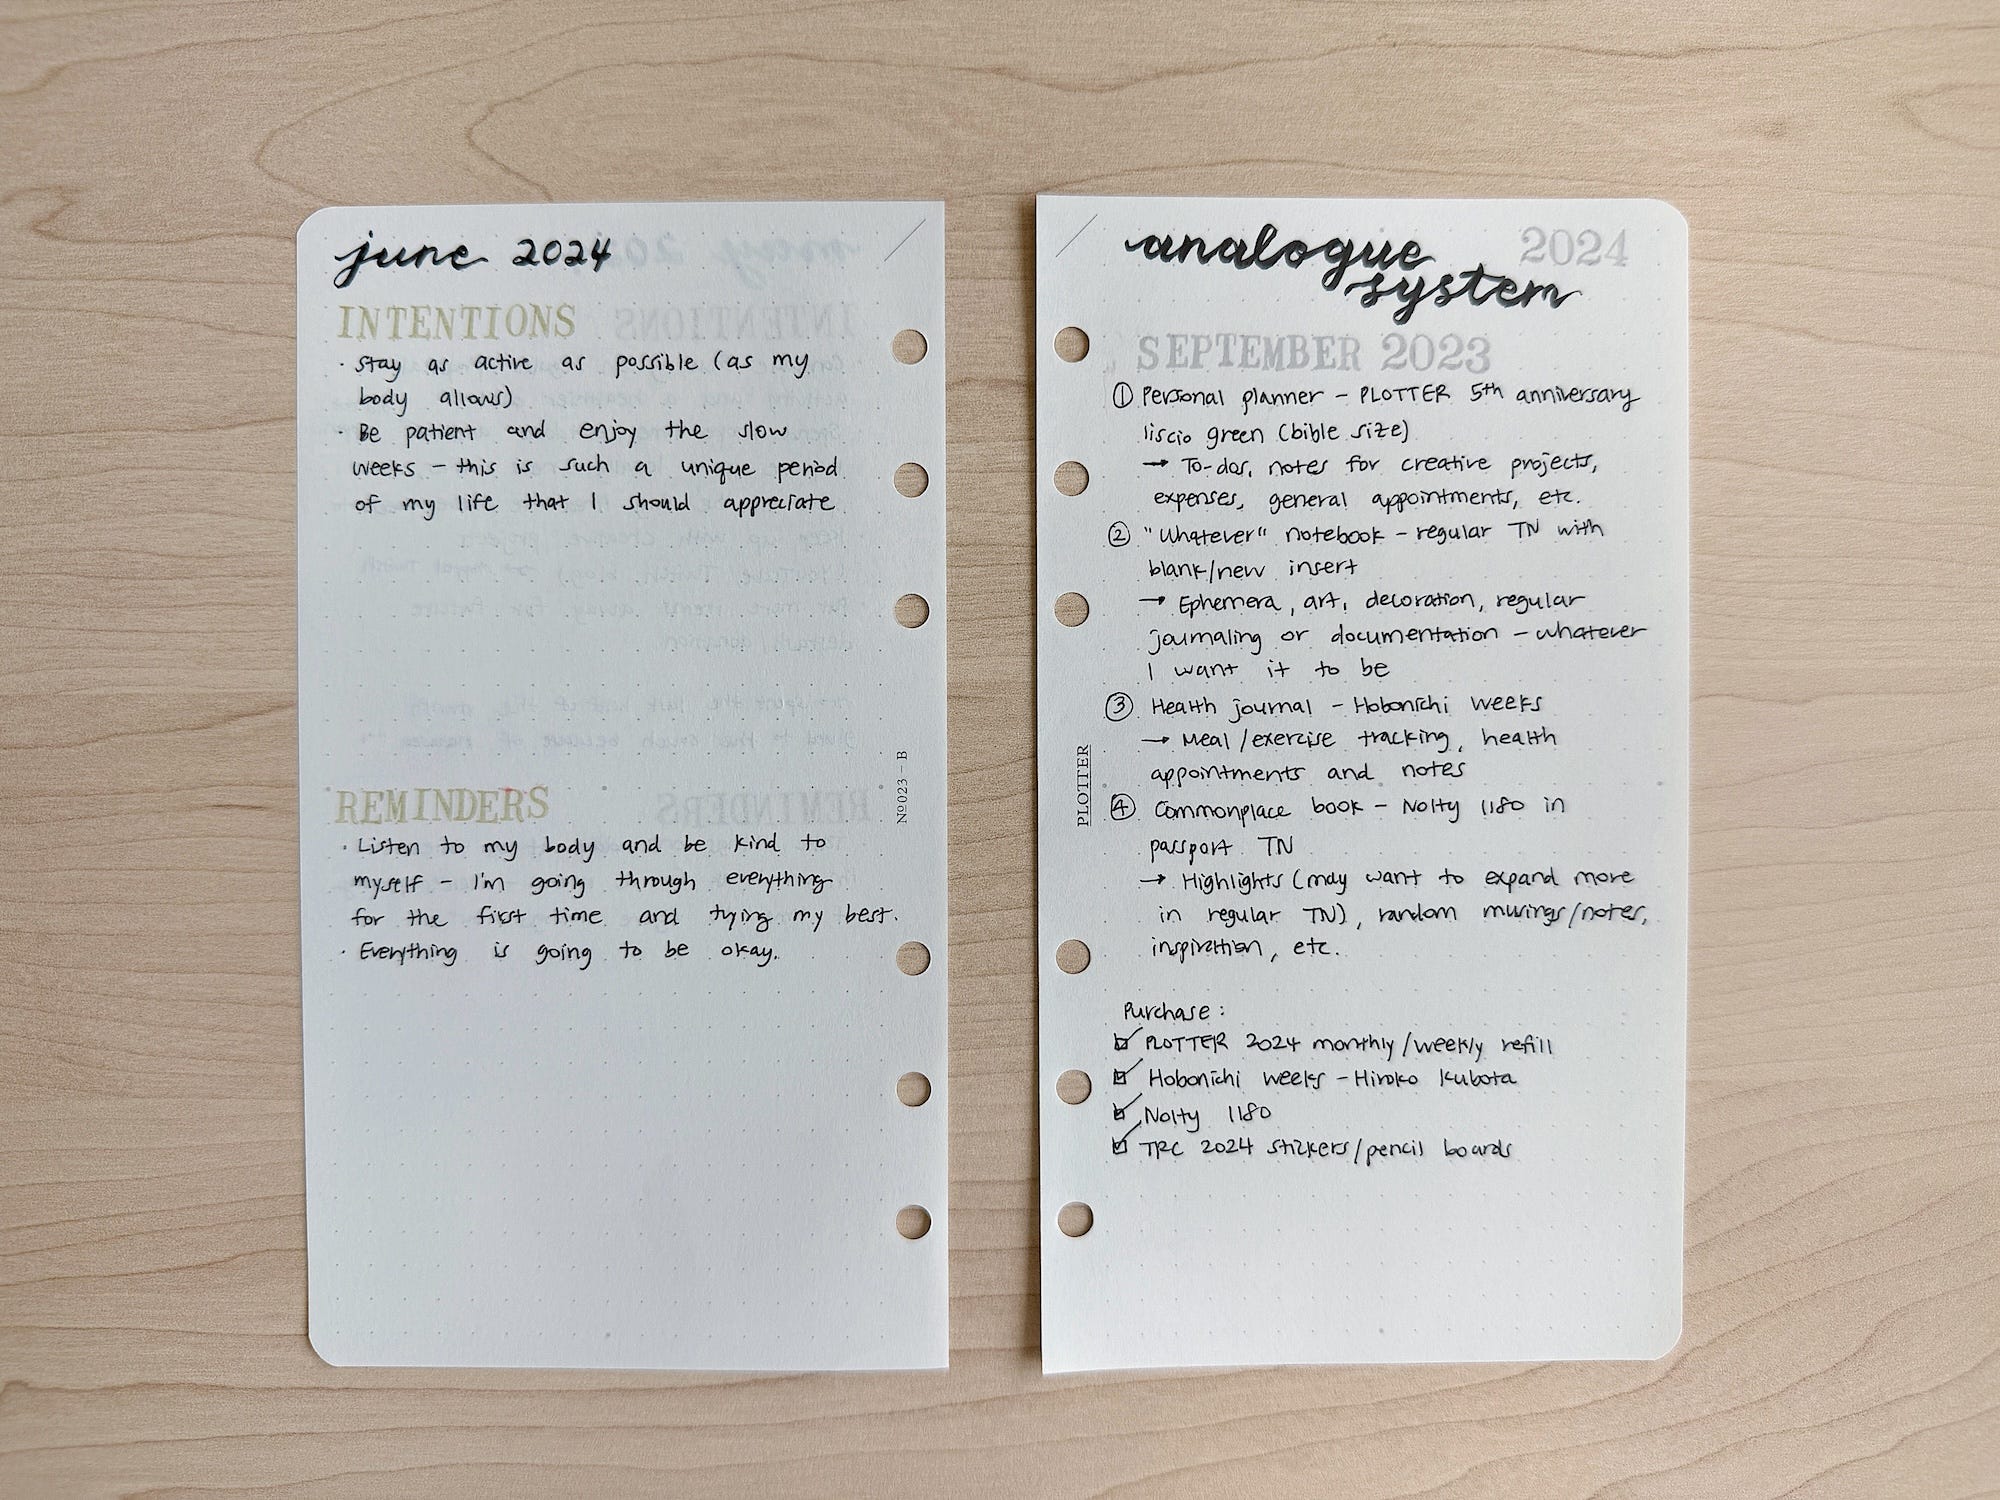 june 2024
INTENTIONS
· Stay as active as possible (as my
body allows)
· Be patient and enjoy the slow
weeks - this is such a unique period
of my life that I should appreciate
REMINDERS
· Listen to my body and be kind to
myself - I'm going through everything
for the first time and trying my best.
· Everything is going to be okay.
Nº023-B
analogue
system
2024
SEPTEMBER 2023
① Personal planner - PLOTTER 5th anniversary
liscio green (bible size)
→ To-dos, notes for creative projects,
expenses, general appointments, etc.
② "Whatever" notebook - regular TN with
blank/new insert
→ Ephemera, art, decoration, regular
journaling or documentation - whatever
I want it to be
③ Health journal - Hobonichi weeks
→ Meal/exercise tracking, health
appointments and notes
④ Commonplace book - Nolty 1180 in
passport TN
→ Highlights (may want to expand more
in regular TN), random musings/notes,
inspiration, etc.
PLOTTER
Purchase:
☑ PLOTTER 2024 monthly/weekly refill
☑ Hobonichi weeks - Hiroko Kubota
☑ Nolty 1180
☑ TRC 2024 stickers/pencil boards